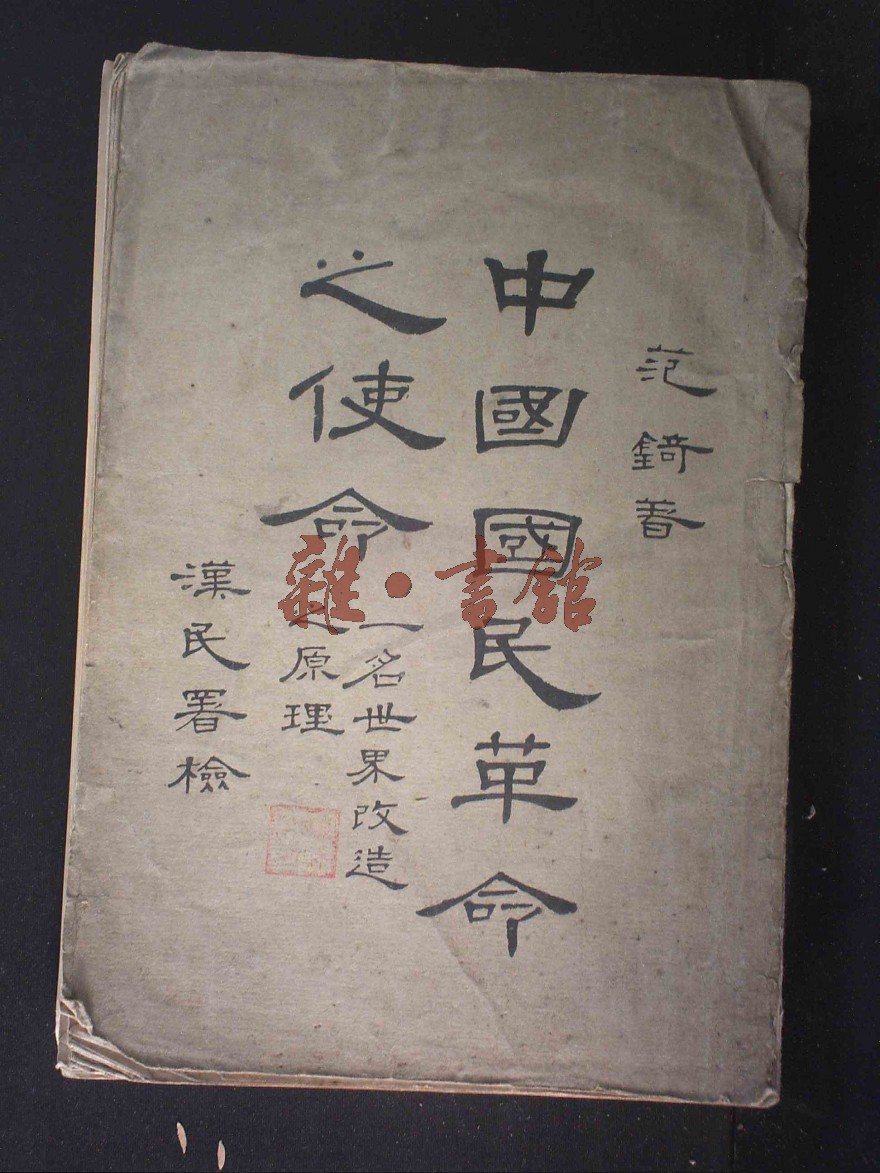 范錡著
中國國民革命
之使命
一名世界改造
之原理
漢民署檢
雜·書館